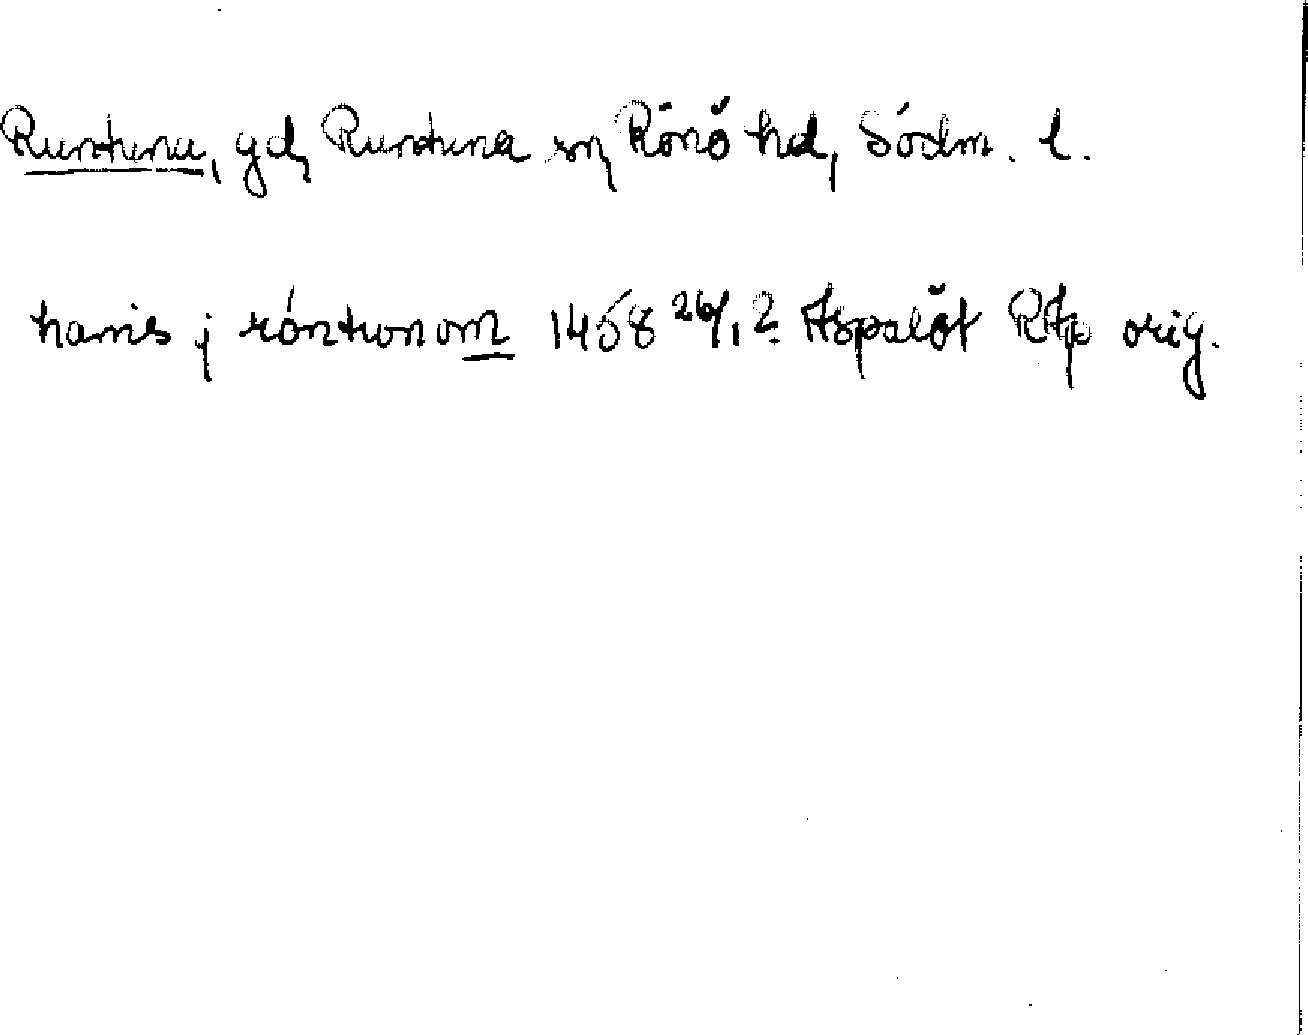 Runtuna, gd, Runtuna sn, Rönö hd, Södm. l.
hannis j röntronom 1458 26/1 2 Aspalöt RAp orig.